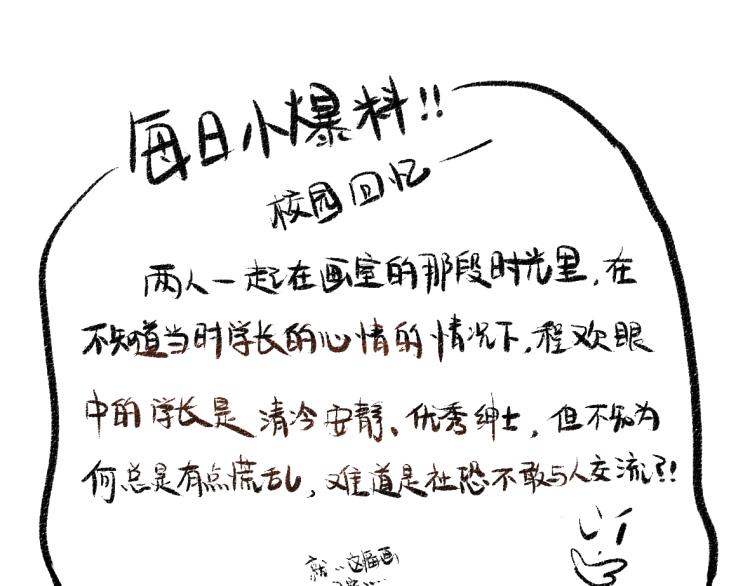 每日小爆料!!
校园回忆一
两人一起在画室的那段时光里,在
不知道当时学长的心情的情况下,程欢眼
中的学长是清冷安静、优秀绅士,但不知为
何总是有点慌乱,难道是社恐不敢与人交流?!
就..这幅画